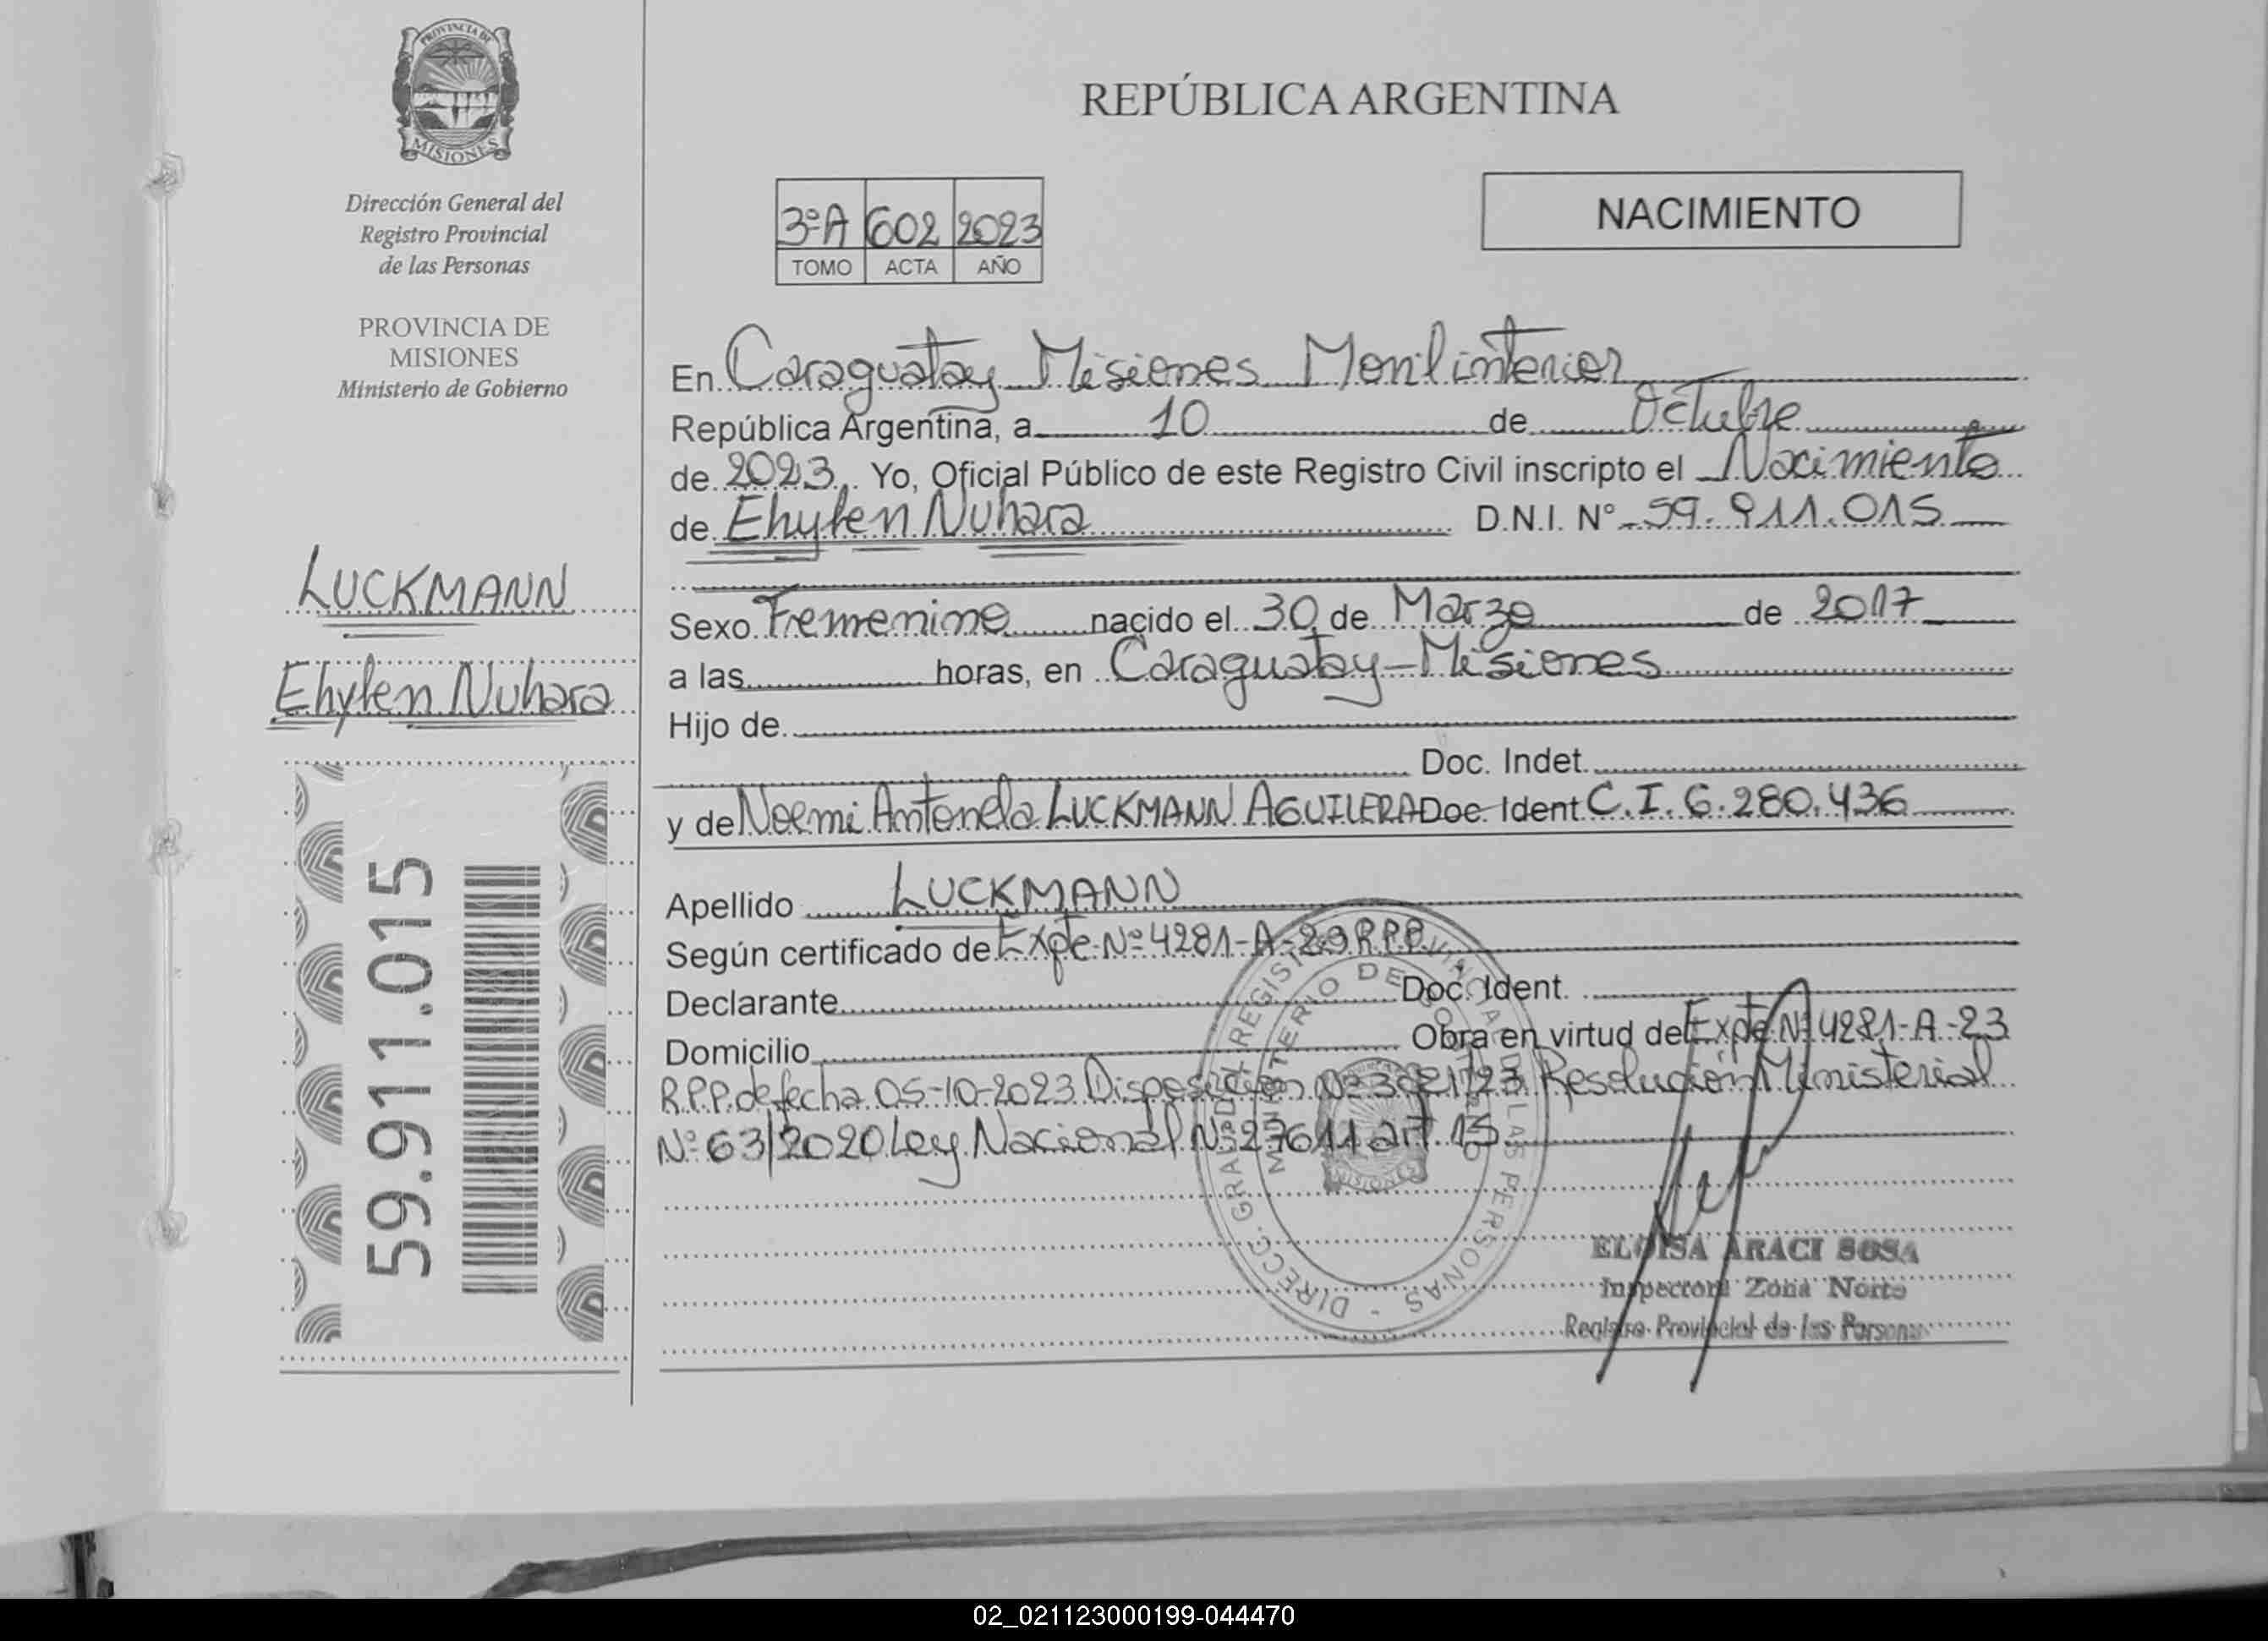 PROVINCIA DE
MISIONES
Dirección General del
Registro Provincial
de las Personas
PROVINCIA DE
MISIONES
Ministerio de Gobierno
LUCKMANN
Ehylen Nuhara
59.911.015
REPÚBLICA ARGENTINA
NACIMIENTO
3ºA 602 2023
TOMO ACTA AÑO
En Caraguatay Misiones
República Argentina, a 10 de Octubre
de 2023 Yo, Oficial Público de este Registro Civil inscripto el Nacimiento
de Ehylen Nuhara D.N.I. Nº 59.911.015
Sexo Femenino nacido el 30 de Marzo de 2017
a las horas, en Caraguatay-Misiones
Hijo de
Doc. Indet.
y de Noemi Antonela LUCKMANN AGUILERA Doc. Ident C.I. 6.280.436
Apellido LUCKMANN
Según certificado de Expte. Nº 4281-A-23 R.P.P.
Declarante Doc. Ident.
Domicilio Obra en virtud de Expte Nº 4281-A-23
R.P.P. de fecha 05-10-2023 Disposición Nº 3821/23 Resolución Ministerial
Nº 63/2020 Ley Nacional Nº 27611 art 15
DIRECC. GRAL. DEL REGISTRO PROVINCIAL DE LAS PERSONAS -
MINISTERIO DE GOBIERNO
MISIONES
ELOISA ARACI SOSA
Inspectora Zona Norte
Registro Provincial de las Personas
02_021123000199-044470